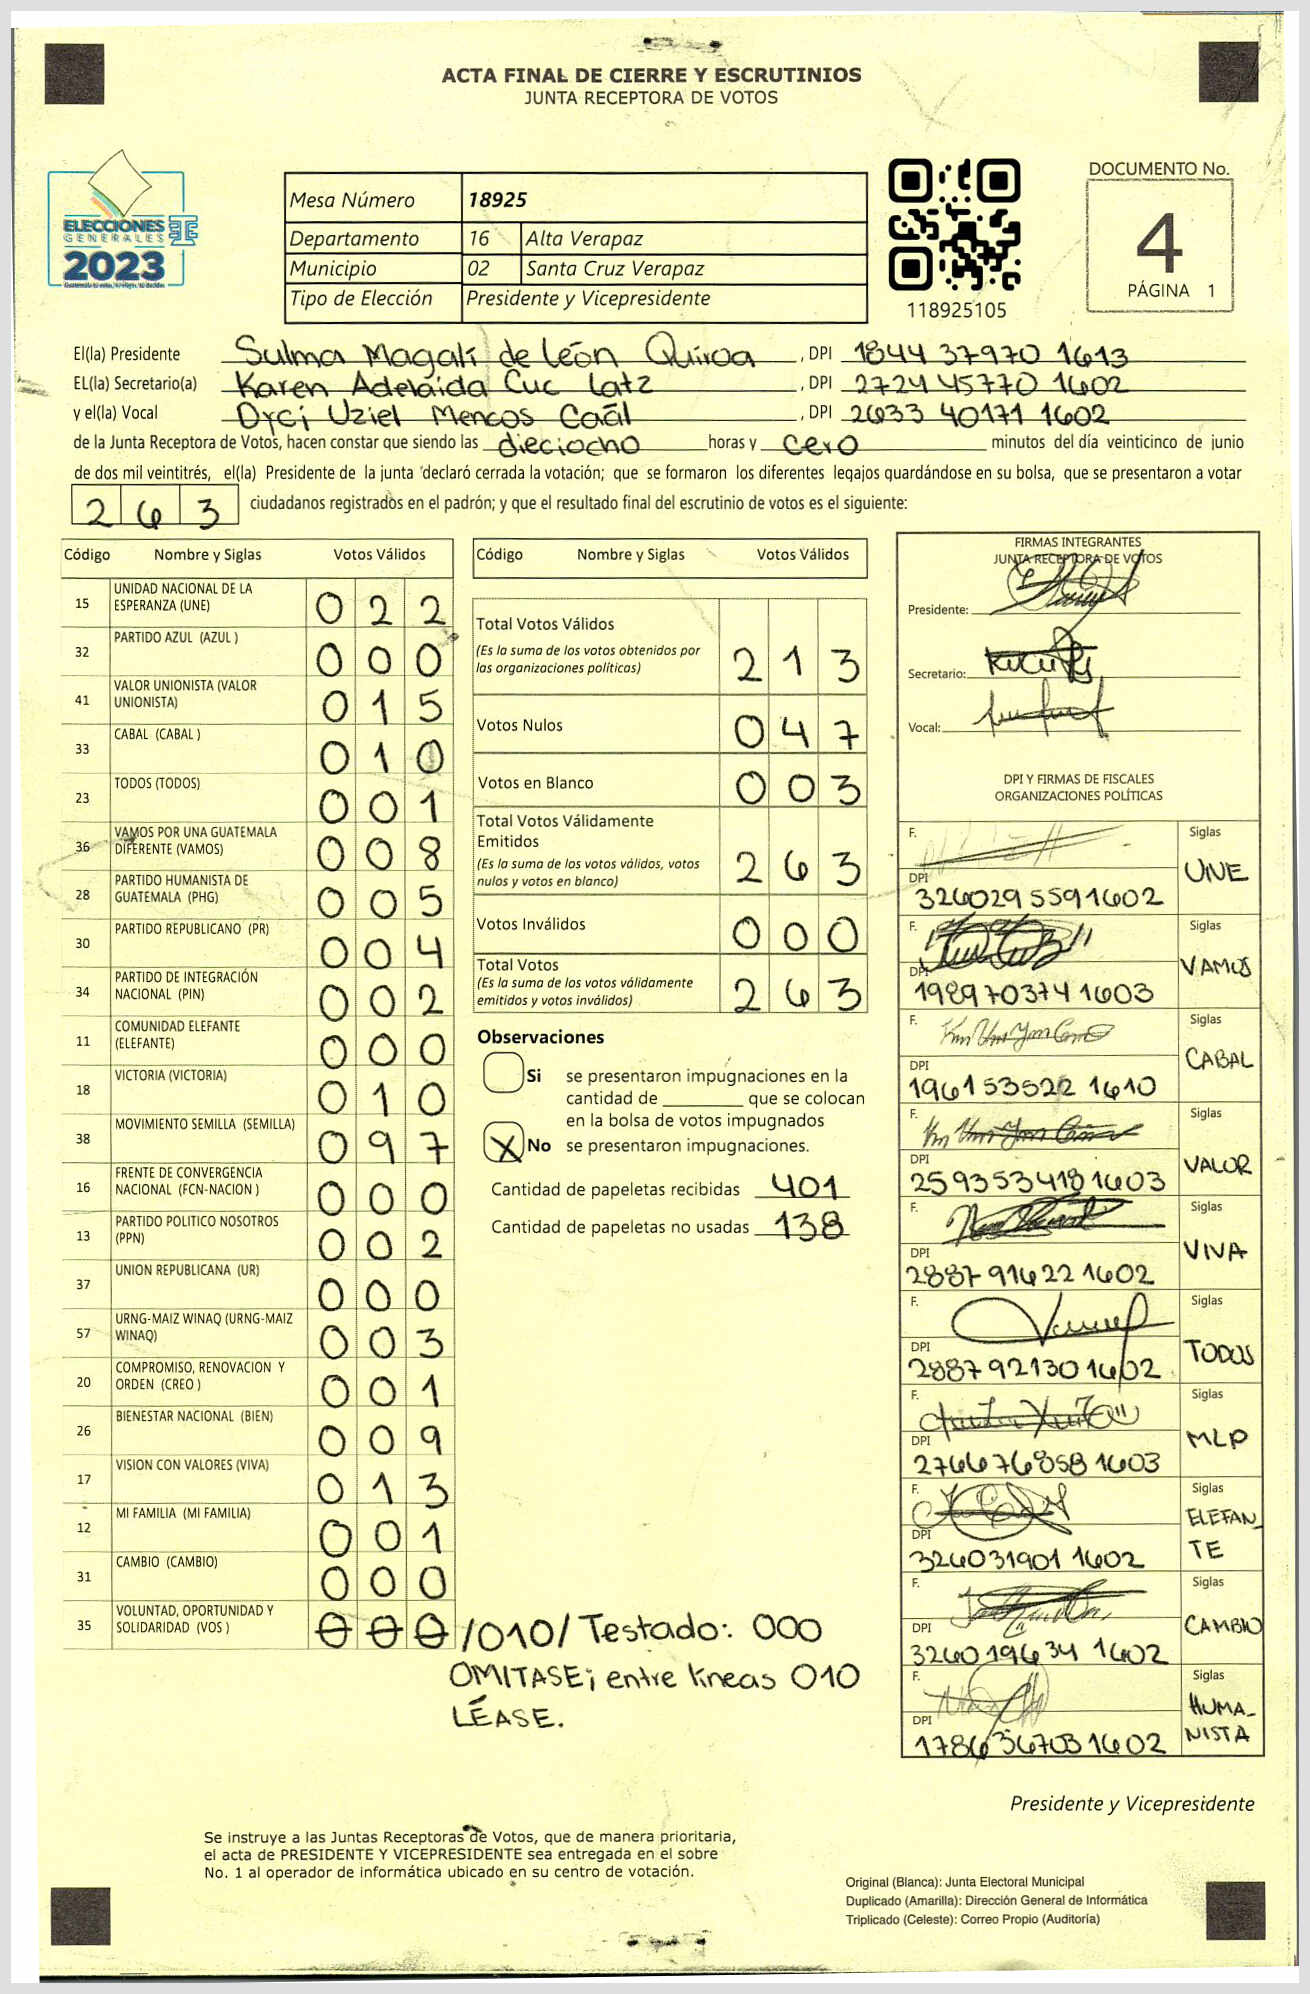 ACTA FINAL DE CIERRE Y ESCRUTINIOS
JUNTA RECEPTORA DE VOTOS
ELECCIONES
GENERALES
2023
Mesa Número 18925
Departamento 16 Alta Verapaz
Municipio 02 Santa Cruz Verapaz
Tipo de Elección Presidente y Vicepresidente
118925105
DOCUMENTO No.
4
PÁGINA 1
El(la) Presidente Sulma Magalí de León Quiroa , DPI 1844 37970 1613
EL(la) Secretario(a) Karen Adelaida Cuc Latz , DPI 2724 45770 1602
y el(la) Vocal Dyci Uziel Mencos Caál , DPI 2633 40171 1602
de la Junta Receptora de Votos, hacen constar que siendo las dieciocho horas y cero minutos del día veinticinco de junio
de dos mil veintitrés, el(la) Presidente de la junta declaró cerrada la votación; que se formaron los diferentes legajos quardándose en su bolsa, que se presentaron a votar
263 ciudadanos registrados en el padrón; y que el resultado final del escrutinio de votos es el siguiente:
Código Nombre y Siglas Votos Válidos
15 UNIDAD NACIONAL DE LA ESPERANZA (UNE) 022
32 PARTIDO AZUL (AZUL ) 000
41 VALOR UNIONISTA (VALOR UNIONISTA) 015
33 CABAL (CABAL ) 010
23 TODOS (TODOS) 001
36 VAMOS POR UNA GUATEMALA DIFERENTE (VAMOS) 008
28 PARTIDO HUMANISTA DE GUATEMALA (PHG) 005
30 PARTIDO REPUBLICANO (PR) 004
34 PARTIDO DE INTEGRACIÓN NACIONAL (PIN) 002
11 COMUNIDAD ELEFANTE (ELEFANTE) 000
18 VICTORIA (VICTORIA) 010
38 MOVIMIENTO SEMILLA (SEMILLA) 097
16 FRENTE DE CONVERGENCIA NACIONAL (FCN-NACION ) 000
13 PARTIDO POLITICO NOSOTROS (PPN) 002
37 UNION REPUBLICANA (UR) 000
57 URNG-MAIZ WINAQ (URNG-MAIZ WINAQ) 003
20 COMPROMISO, RENOVACION Y ORDEN (CREO ) 001
26 BIENESTAR NACIONAL (BIEN) 009
17 VISION CON VALORES (VIVA) 013
12 MI FAMILIA (MI FAMILIA) 001
31 CAMBIO (CAMBIO) 000
35 VOLUNTAD, OPORTUNIDAD Y SOLIDARIDAD (VOS ) 000 /010/ Testado: 000
OMITASE; entre líneas 010
LÉASE.
Código Nombre y Siglas Votos Válidos
Total Votos Válidos 213
(Es la suma de los votos obtenidos por
las organizaciones políticas)
Votos Nulos 047
Votos en Blanco 003
Total Votos Válidamente
Emitidos 263
(Es la suma de los votos válidos, votos
nulos y votos en blanco)
Votos Inválidos 000
Total Votos 263
(Es la suma de los votos válidamente
emitidos y votos inválidos)
Observaciones
Si se presentaron impugnaciones en la
cantidad de ________ que se colocan
en la bolsa de votos impugnados
X No se presentaron impugnaciones.
Cantidad de papeletas recibidas 401
Cantidad de papeletas no usadas 138
FIRMAS INTEGRANTES
JUNTA RECEPTORA DE VOTOS
Presidente:
Secretario:
Vocal:
DPI Y FIRMAS DE FISCALES
ORGANIZACIONES POLÍTICAS
F. Siglas
DPI 326029 5591602 UNE
F. Siglas
DPI 198970374 1603 VAMOS
F. Siglas
DPI 196153522 1610 CABAL
F. Siglas
DPI 259353418 1603 VALOR
F. Siglas
DPI 2887 91622 1602 VIVA
F. Siglas
DPI 2887 92130 1602 TODOS
F. Siglas
DPI 276676858 1603 MLP
F. Siglas
DPI 326031901 1602 ELEFAN_
TE
F. Siglas
DPI 326019634 1602 CAMBIO
F. Siglas
DPI 178636703 1602 HUMA_
NISTA
Presidente y Vicepresidente
Se instruye a las Juntas Receptoras de Votos, que de manera prioritaria,
el acta de PRESIDENTE Y VICEPRESIDENTE sea entregada en el sobre
No. 1 al operador de informática ubicado en su centro de votación.
Original (Blanca): Junta Electoral Municipal
Duplicado (Amarilla): Dirección General de Informática
Triplicado (Celeste): Correo Propio (Auditoría)